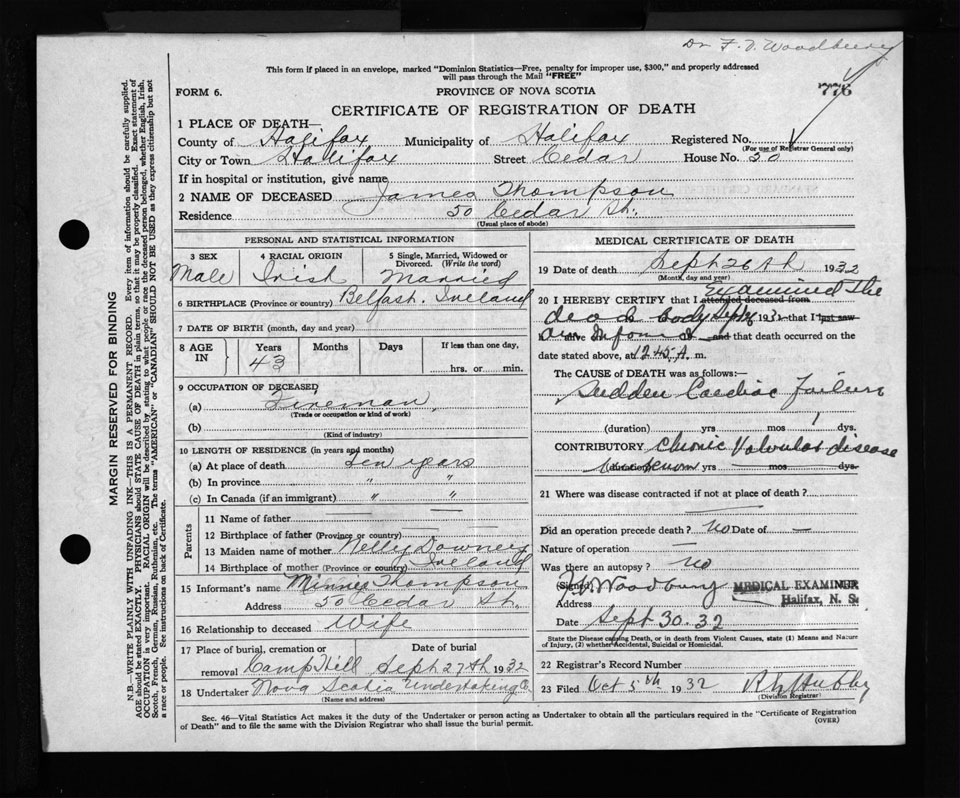 Dr F. V. Woodbury
This form if placed in an envelope, marked "Dominion Statistics—Free, penalty for improper use, $300," and properly addressed
will pass through the Mail "FREE"
776
FORM 6.
PROVINCE OF NOVA SCOTIA
CERTIFICATE OF REGISTRATION OF DEATH
1 PLACE OF DEATH—
County of Halifax Municipality of Halifax Registered No.
(For use of Registrar General only)
City or Town Halifax Street Cedar House No. 50
If in hospital or institution, give name
2 NAME OF DECEASED James Thompson
Residence 50 Cedar St.
(Usual place of abode)
PERSONAL AND STATISTICAL INFORMATION
3 SEX 4 RACIAL ORIGIN 5 Single, Married, Widowed or
Divorced. (Write the word)
Male Irish Married
6 BIRTHPLACE (Province or country) Belfast. Ireland
7 DATE OF BIRTH (month, day and year)
8 AGE IN Years Months Days If less than one day,
43
hrs. or min.
9 OCCUPATION OF DECEASED
(a) Fireman
(Trade or occupation or kind of work)
(b)
(Kind of industry)
10 LENGTH OF RESIDENCE (in years and months)
(a) At place of death ten years
(b) In province " "
(c) In Canada (if an immigrant) " "
Parents
11 Name of father —
12 Birthplace of father (Province or country) —
13 Maiden name of mother Nelly Downey
14 Birthplace of mother (Province or country) Ireland
15 Informant's name Minnie Thompson
Address 50 Cedar St.
16 Relationship to deceased Wife
17 Place of burial, cremation or Date of burial
removal Camp Hill Sept 27th 1932
18 Undertaker Nova Scotia Undertaking Co
(Name and address)
MEDICAL CERTIFICATE OF DEATH
19 Date of death Sept 26th 1932
(Month, day and year)
Examined the
20 I HEREBY CERTIFY that I attended deceased from
dead body Sept 26 1932 that I last saw
alive and that death occurred on the
date stated above, at 12.45 A. m.
The CAUSE of DEATH was as follows:—
Sudden Cardiac Failure
(duration) yrs mos 1 dys.
CONTRIBUTORY Chronic Valvular disease
(duration) yrs mos dys.
21 Where was disease contracted if not at place of death?
Did an operation precede death? no Date of —
Nature of operation —
Was there an autopsy? no
(Signed) Woodbury MEDICAL EXAMINER
Address Halifax, N. S.
Date Sept 30. 32
State the Disease causing Death, or in death from Violent Causes, state (1) Means and Nature
of Injury, (2) whether Accidental, Suicidal or Homicidal.
22 Registrar's Record Number
23 Filed Oct 5th 1932
(Division Registrar)
Sec. 46—Vital Statistics Act makes it the duty of the Undertaker or person acting as Undertaker to obtain all the particulars required in the "Certificate of Registration
of Death" and to file the same with the Division Registrar who shall issue the burial permit. (OVER)
MARGIN RESERVED FOR BINDING
N.B.—WRITE PLAINLY WITH UNFADING INK—THIS IS A PERMANENT RECORD. Every item of information should be carefully supplied.
AGE should be stated EXACTLY. PHYSICIANS should STATE CAUSE OF DEATH in plain terms, so that it may be properly classified. Exact statement of
OCCUPATION is very important. RACIAL ORIGIN will be described by stating to what people or race the deceased person belonged, whether English, Irish,
Scotch, French, German, Russian, Ruthenian, etc. The terms "AMERICAN" or "CANADIAN" SHOULD NOT BE USED as they express citizenship but not
a race or people. See instructions on back of Certificate.